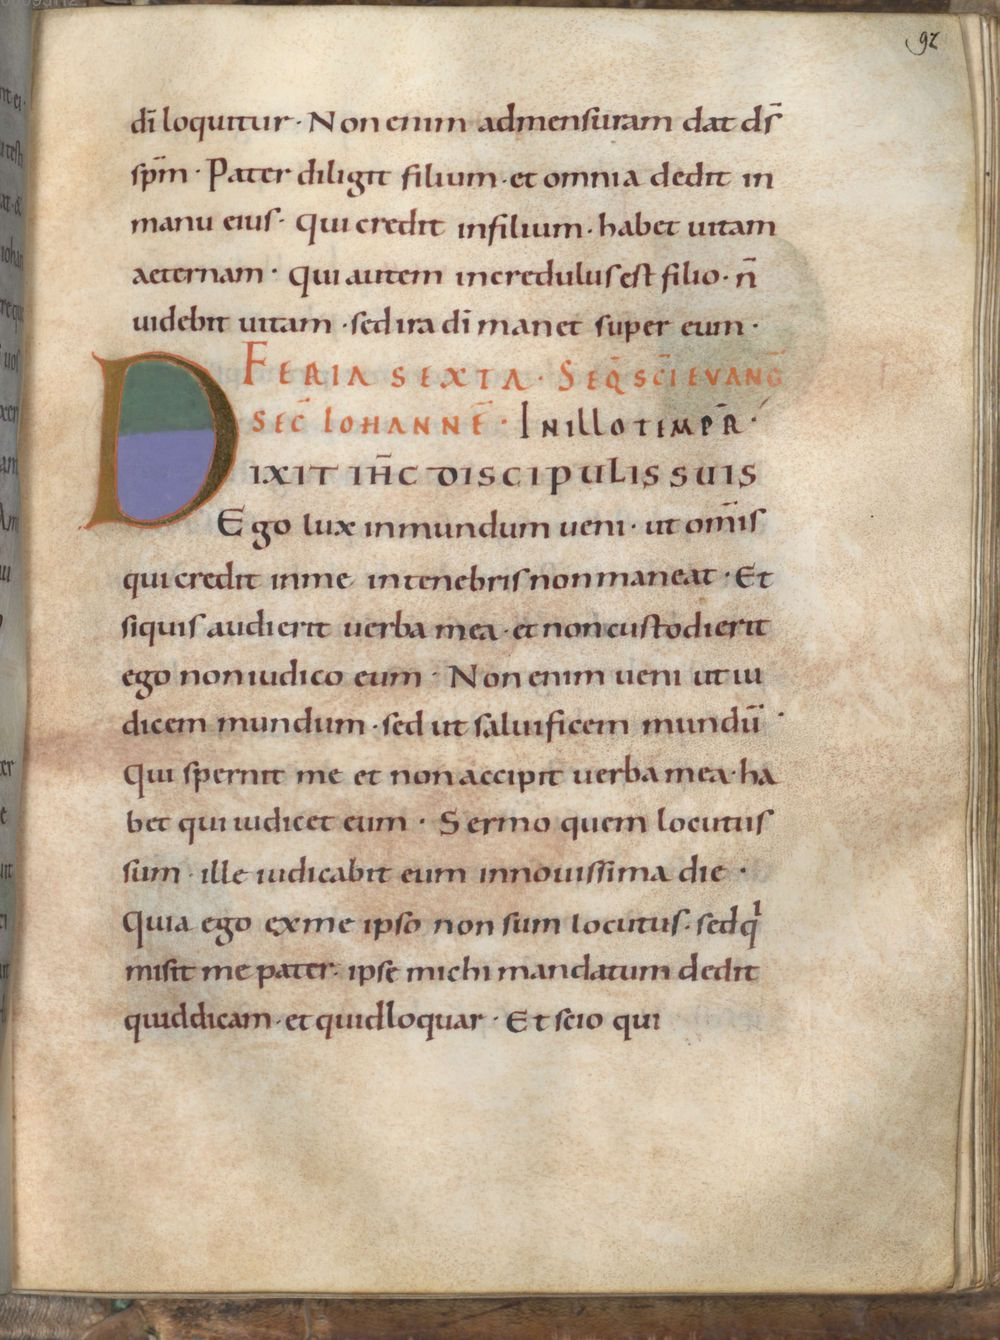 92
dī loquitur · Non enim admensuram dat ds̄
sp̄m · Pater diligit filium · et omnia dedit in
manu eius · Qui credit infilium · habet uitam
aeternam · Qui autem incredulus est filio · n̄
uidebit uitam · sed ira dī manet super eum ·
FERIA SEXTA · SEQ̄ SC̄I EVANḠ
SEC̄ IOHANNĒ · IN ILLO TEMPR̄ ·
DIXIT IH̄C DISCIPULIS SUIS
Ego lux inmundum ueni · ut om̄is
qui credit inme intenebris non maneat · Et
siquis audierit uerba mea · et non custodierit
ego non iudico eum · Non enim ueni ut iu
dicem mundum · sed ut saluificem mundū ·
Qui spernit me et non accipit uerba mea · ha
bet qui iudicet eum · Sermo quem locutus
sum · ille iudicabit eum innouissima die ·
Quia ego exme ipso non sum locutus · sed qⁱ
misit me pater · ipse michi mandatum dedit
quid dicam · et quid loquar · Et scio qui